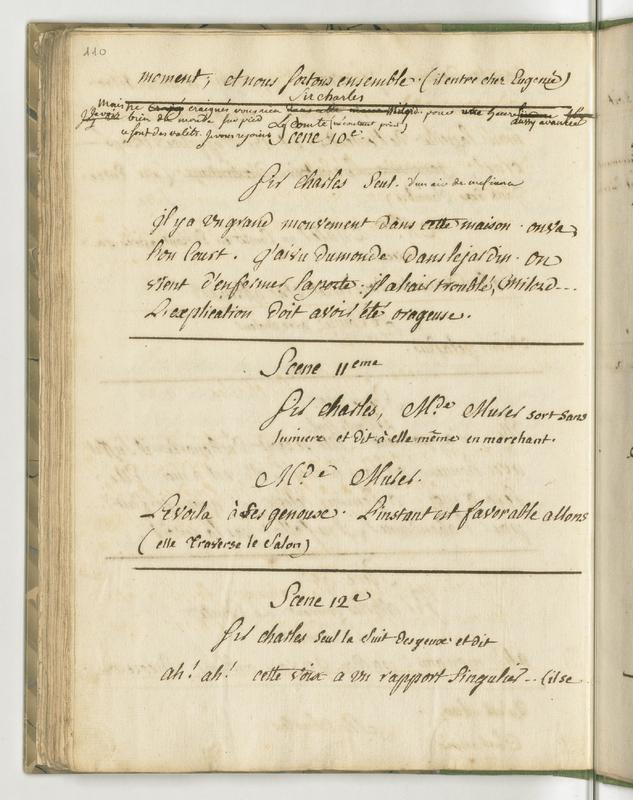 110
moment, et nous sortons ensemble. (il entre chez Eugenie)
Sir charles
Mais ne craignés vous rien Milord. pour une heure aussy avancée
J'avois bien du monde sur pied Le Comte (mécontent)
ce sont des valets. Je vous rejoins Scene 10e.
Sir Charles Seul. d'un air de mefiance
il y a un grand mouvement dans cette maison. on va,
l'on court. j'ai vu du monde dans le jardin. on
vient d'enfermer la porte. il a l'air troublé, Milord...
L'explication doit avoir été orageuse.
Scene 11eme
Sir charles, Mde Murer sort sans
lumiere et dit à elle même en marchant.
Mde Murer.
Le voila à ses genoux. L'instant est favorable allons
(elle traverse le salon)
Scene 12e
Sir charles seul la suit des yeux et dit
ah! ah! cette voix a un rapport singulier... (il se